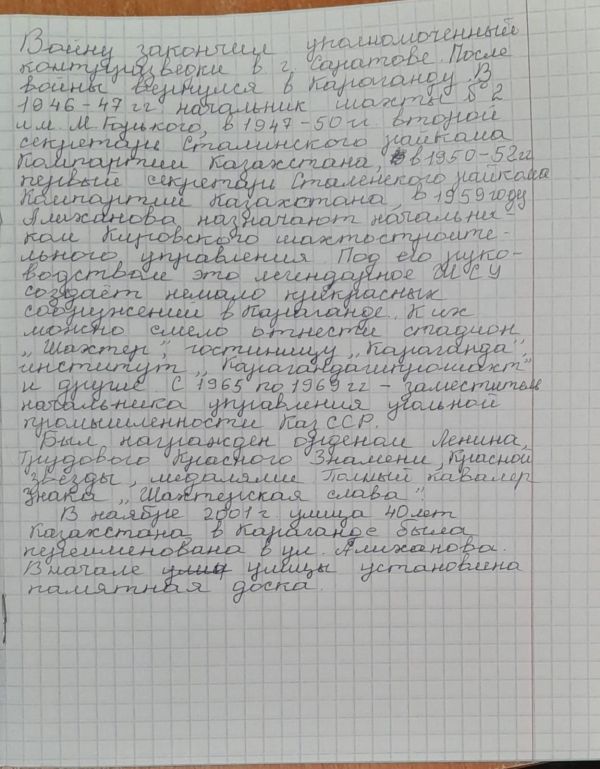 Войну закончил уполномоченный
контрразведки в г. Саратове. После
войны вернулся в Караганду. В
1946-47 гг начальник шахты б 2
им. М. Горького, в 1947-50 гг второй
секретарь Сталинского райкома
Компартии Казахстана, в 1950-52 гг
первый секретарь Сталенского райкома
Компартии Казахстана, в 1959 году
Алиханова назначают начальни-
ком Кировского шахтостроите-
льного управления. Под его руко-
водством это легендарное ШСУ
создаёт немало прекрасных
сооружений в Караганде. К их
можно смело отнести стадион
„Шахтёр", гостиницу „Караганда",
институт „Карагандагипрошахт"
и другие. С 1965 по 1969 гг - заместитель
начальника управления угольной
промышленности Каз ССР.
Был награжден орденом Ленина,
Трудового Красного Знамени, Красной
звезды, медалями. Полный кавалер
знака „Шахтерская слава".
В наябре 2001 г улица 40 лет
Казахстана в Караганде была
переименована в ул. Алиханова.
Вначале улицы установлена
памятная доска.